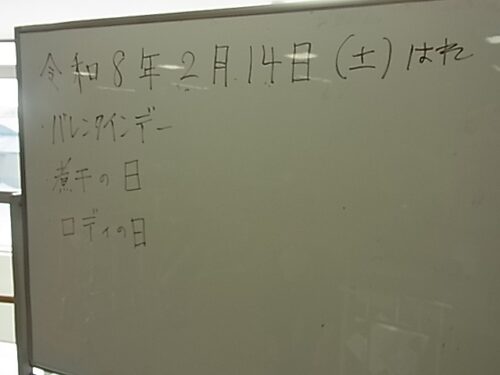 令和8年2月14日(土)はれ
・バレンタインデー
・煮干の日
・ロディの日